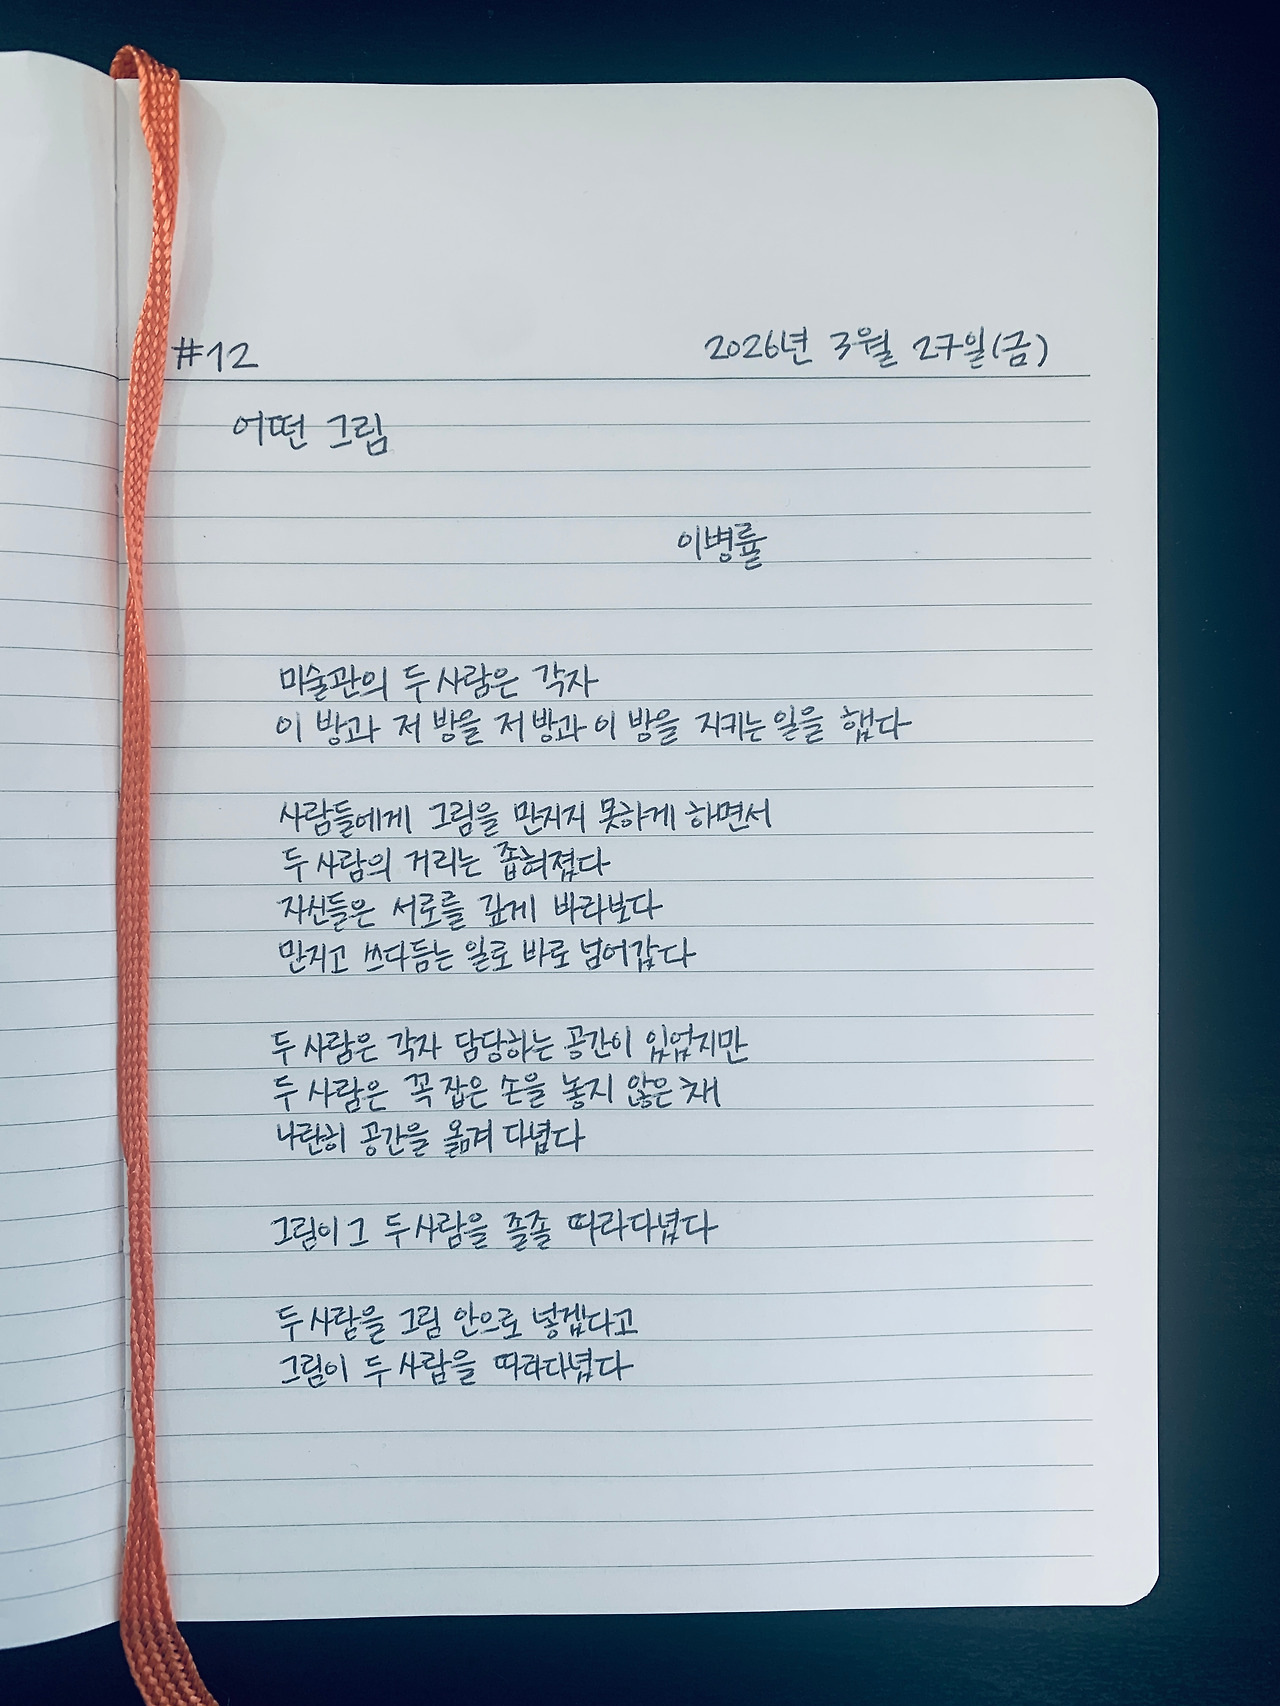 #12
2026년 3월 27일(금)
어떤 그림
이병률
미술관의 두 사람은 각자
이 방과 저 방을 저 방과 이 방을 지키는 일을 했다
사람들에게 그림을 만지지 못하게 하면서
두 사람의 거리는 좁혀졌다
자신들은 서로를 깊게 바라보다
만지고 쓰다듬는 일로 바로 넘어갔다
두 사람은 각자 담당하는 공간이 있었지만
두 사람은 꼭 잡은 손을 놓지 않은 채
나란히 공간을 옮겨 다녔다
그림이 그 두 사람을 졸졸 따라다녔다
두 사람을 그림 안으로 넣겠다고
그림이 두 사람을 따라다녔다